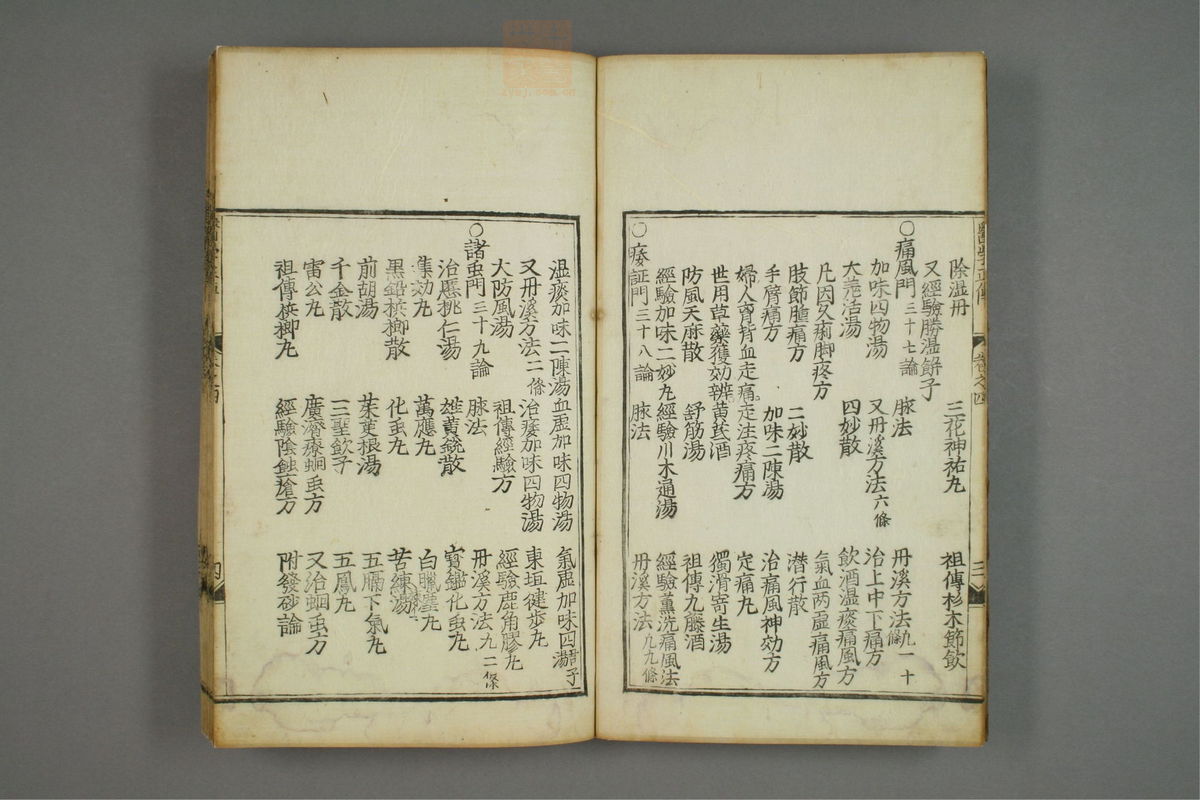 除湿丹 三花神祐丸 祖傳杉木節飲
又經驗勝湿餅子
○痛風門三十七論 脉法 丹溪方法九一十條
加味四物湯 又丹溪方法六條 治上中下痛方
大羌活湯 四妙散 飲酒湿痰痛風方
凡因久痢脚疼方 氣血两虚痛風方
肢節腫痛方 二妙散 潜行散
手臂痛方 加味二陳湯 治痛風神効方
婦人脊背血走痛 走注疼痛方 定痛丸
世用草藥獲効辨 黄茋酒 獨滑寄生湯
防風天麻散 舒筋湯 祖傳九藤酒
經驗加味二妙丸 經驗川木通湯 經驗薫洗痛風法
○痿証門三十八論 脉法 丹溪方法九九條
湿痰加味二陳湯 血虚加味四物湯 氣虚加味四君子湯
又丹溪方法二條 治痿加味四物湯 東垣健步丸
大防風湯 祖傳經驗方 經驗鹿角膠丸
○諸虫門三十九論 脉法 丹溪方法九二條
治䘌桃仁湯 雄黄銳散 寳鑑化虫丸
集効丸 萬應丸 白臘塵丸
黒鉛梹榔散 化虫丸 苦練湯
前胡湯 茱萸根湯 五膈下氣丸
千金散 三聖飲子 五鳳丸
雷公丸 廣濟療蛔虫方 又治蛔虫方
祖傳梹榔丸 經驗陰蝕瘡方 附發砂論
醫學正傳 卷之四 三
四